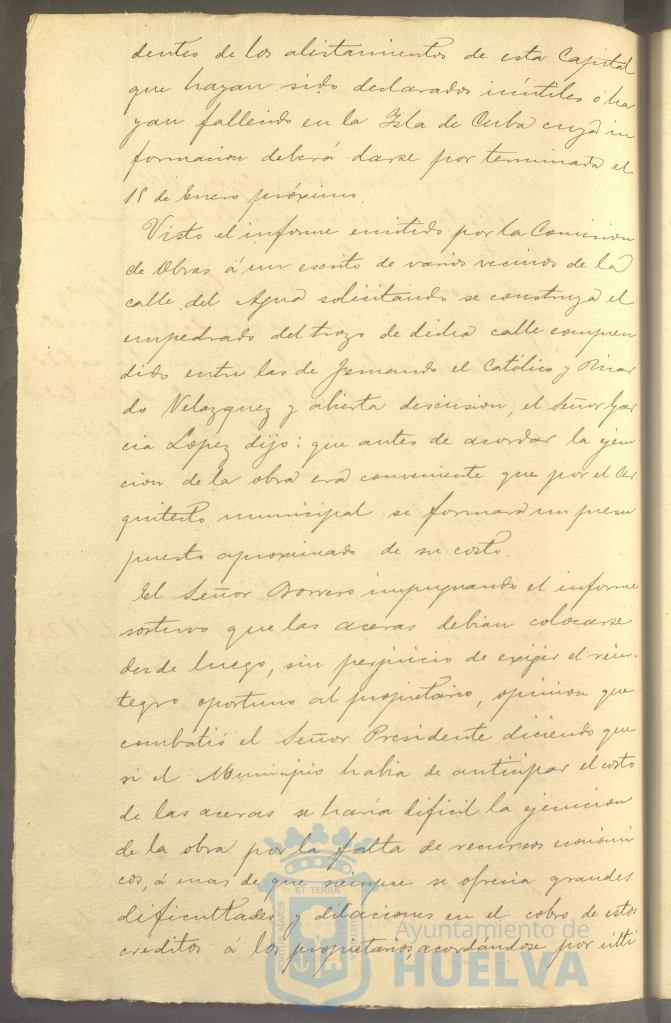 dentes de los alistamientos de esta Capital
que hayan sido declarados inútiles ó ha
yan fallecido en la Isla de Cuba cuya in
formacion deberá darse por terminada el
15 de Enero próximo.
Visto el informe emitido por la Comision
de Obras á un escrito de varios vecinos de la
calle del Agua solicitando se construya el
empedrado del trozo de dicha calle compren
dido entre las de Fernando el Católico y Ricar
do Velazquez y abierta discusion, el Señor Gar
cia Lopez dijo: que antes de acordar la ejecu
cion de la obra era conveniente que por el Ar
quitecto municipal se formara un presu
puesto aproximado de su costo.
El Señor Borrero impugnando el informe
sostuvo que las aceras debian colocarse
desde luego, sin perjuicio de exigir el rein-
tegro oportuno al propietario, opinion que
combatió el Señor Presidente diciendo que
si el Municipio habia de anticipar el costo
de las aceras se haría dificil la ejecucion
de la obra por la falta de recursos económi
cos, á mas de que siempre se ofrecia grandes
dificultades y dilaciones en el cobro de estos
creditos á los propietarios, acordándose por últi
Ayuntamiento de
HUELVA